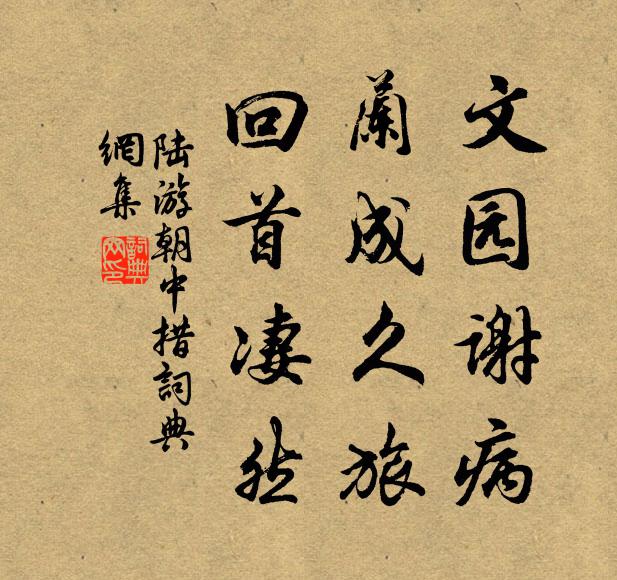 文园谢病
蘭成久旅
回首凄然
陆游朝中措詞典
網集
詞典
网印